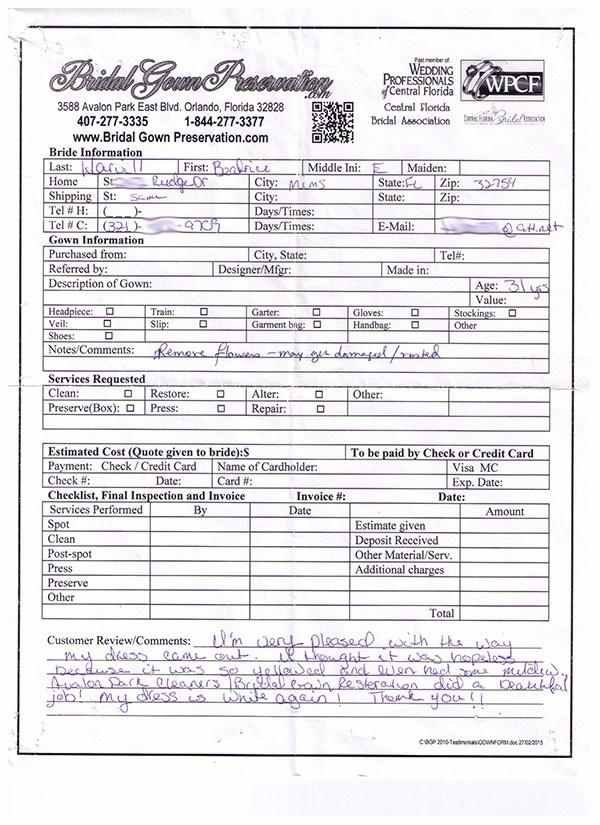 Bridal Gown Preservation.com
Past member of
WEDDING PROFESSIONALS of Central Florida
WPCF
Central Florida Bridal Association
CENTRAL FLORIDA Bridal ASSOCIATION
3588 Avalon Park East Blvd. Orlando, Florida 32828
407-277-3335 1-844-277-3377
www.Bridal Gown Preservation.com
Bride Information
Last: First: Beatrice Middle Ini: E Maiden:
Home St: Ridge Dr City: Mims State: FL Zip: 32754
Shipping St: Same City: State: Zip:
Tel # H: (___)- Days/Times:
Tel # C: (321)- Days/Times: E-Mail: @
Gown Information
Purchased from: City, State: Tel#:
Referred by: Designer/Mfgr: Made in:
Description of Gown: Age: 31 yrs
Value:
Headpiece: Train: Garter: Gloves: Stockings:
Veil: Slip: Garment bag: Handbag: Other
Shoes:
Notes/Comments: Remove flowers - may get damaged / rusted
Services Requested
Clean: Restore: Alter: Other:
Preserve(Box): Press: Repair:
Estimated Cost (Quote given to bride):$ To be paid by Check or Credit Card
Payment: Check / Credit Card Name of Cardholder: Visa MC
Check #: Date: Card #: Exp. Date:
Checklist, Final Inspection and Invoice Invoice #: Date:
Services Performed By Date Amount
Spot Estimate given
Clean Deposit Received
Post-spot Other Material/Serv.
Press Additional charges
Preserve
Other
Total
Customer Review/Comments: I'm very pleased with the way
my dress came out. I thought it was hopeless
because it was so yellowed and even had some mildew.
Avalon Park Cleaners/Bridal Gown Restoration did a beautiful
job! My dress is white again! Thank you!!
C:\BGP 2010-Testimonials\GOWNFORM.doc 27/02/2015